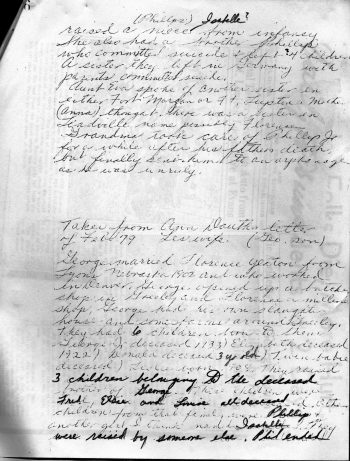 (Phillip) Isabelle?
raised a niece from infancy
She also had a brother Phillip
who committed suicide & left 4 children
A sister they left in Germany with
parents committed suicide.
Aunt Eva spoke of another sister in
either Fort Morgan or Ft. Lupton & Mother
(Anna) thought there was a sister in
name possibly Florence.
Grandma took care of Phillip Jr.
for a while after his father's death
but finally sent him to an orphanage
as he was unruly.
Taken from Ann letter
of Feb. '79 (Geo. son)
George married Florence from
Lyons Nebraska and who worked
in Denver. George opened up a butcher
shop in Greeley and Florence a millinery
shop. George had his own slaughter
house and some farms around Greeley.
They had 6 children born to them
(George Jr. deceased 1933) Elizabeth deceased
1922) Donald deceased 3 yr old) Twin babies
deceased) They raised
3 children belonging to the deceased
George.
Fred, Elsie and Louise all deceased
children from that family were Phillip &
another girl I think named Isabelle. They
were raised by someone else. Phil ended